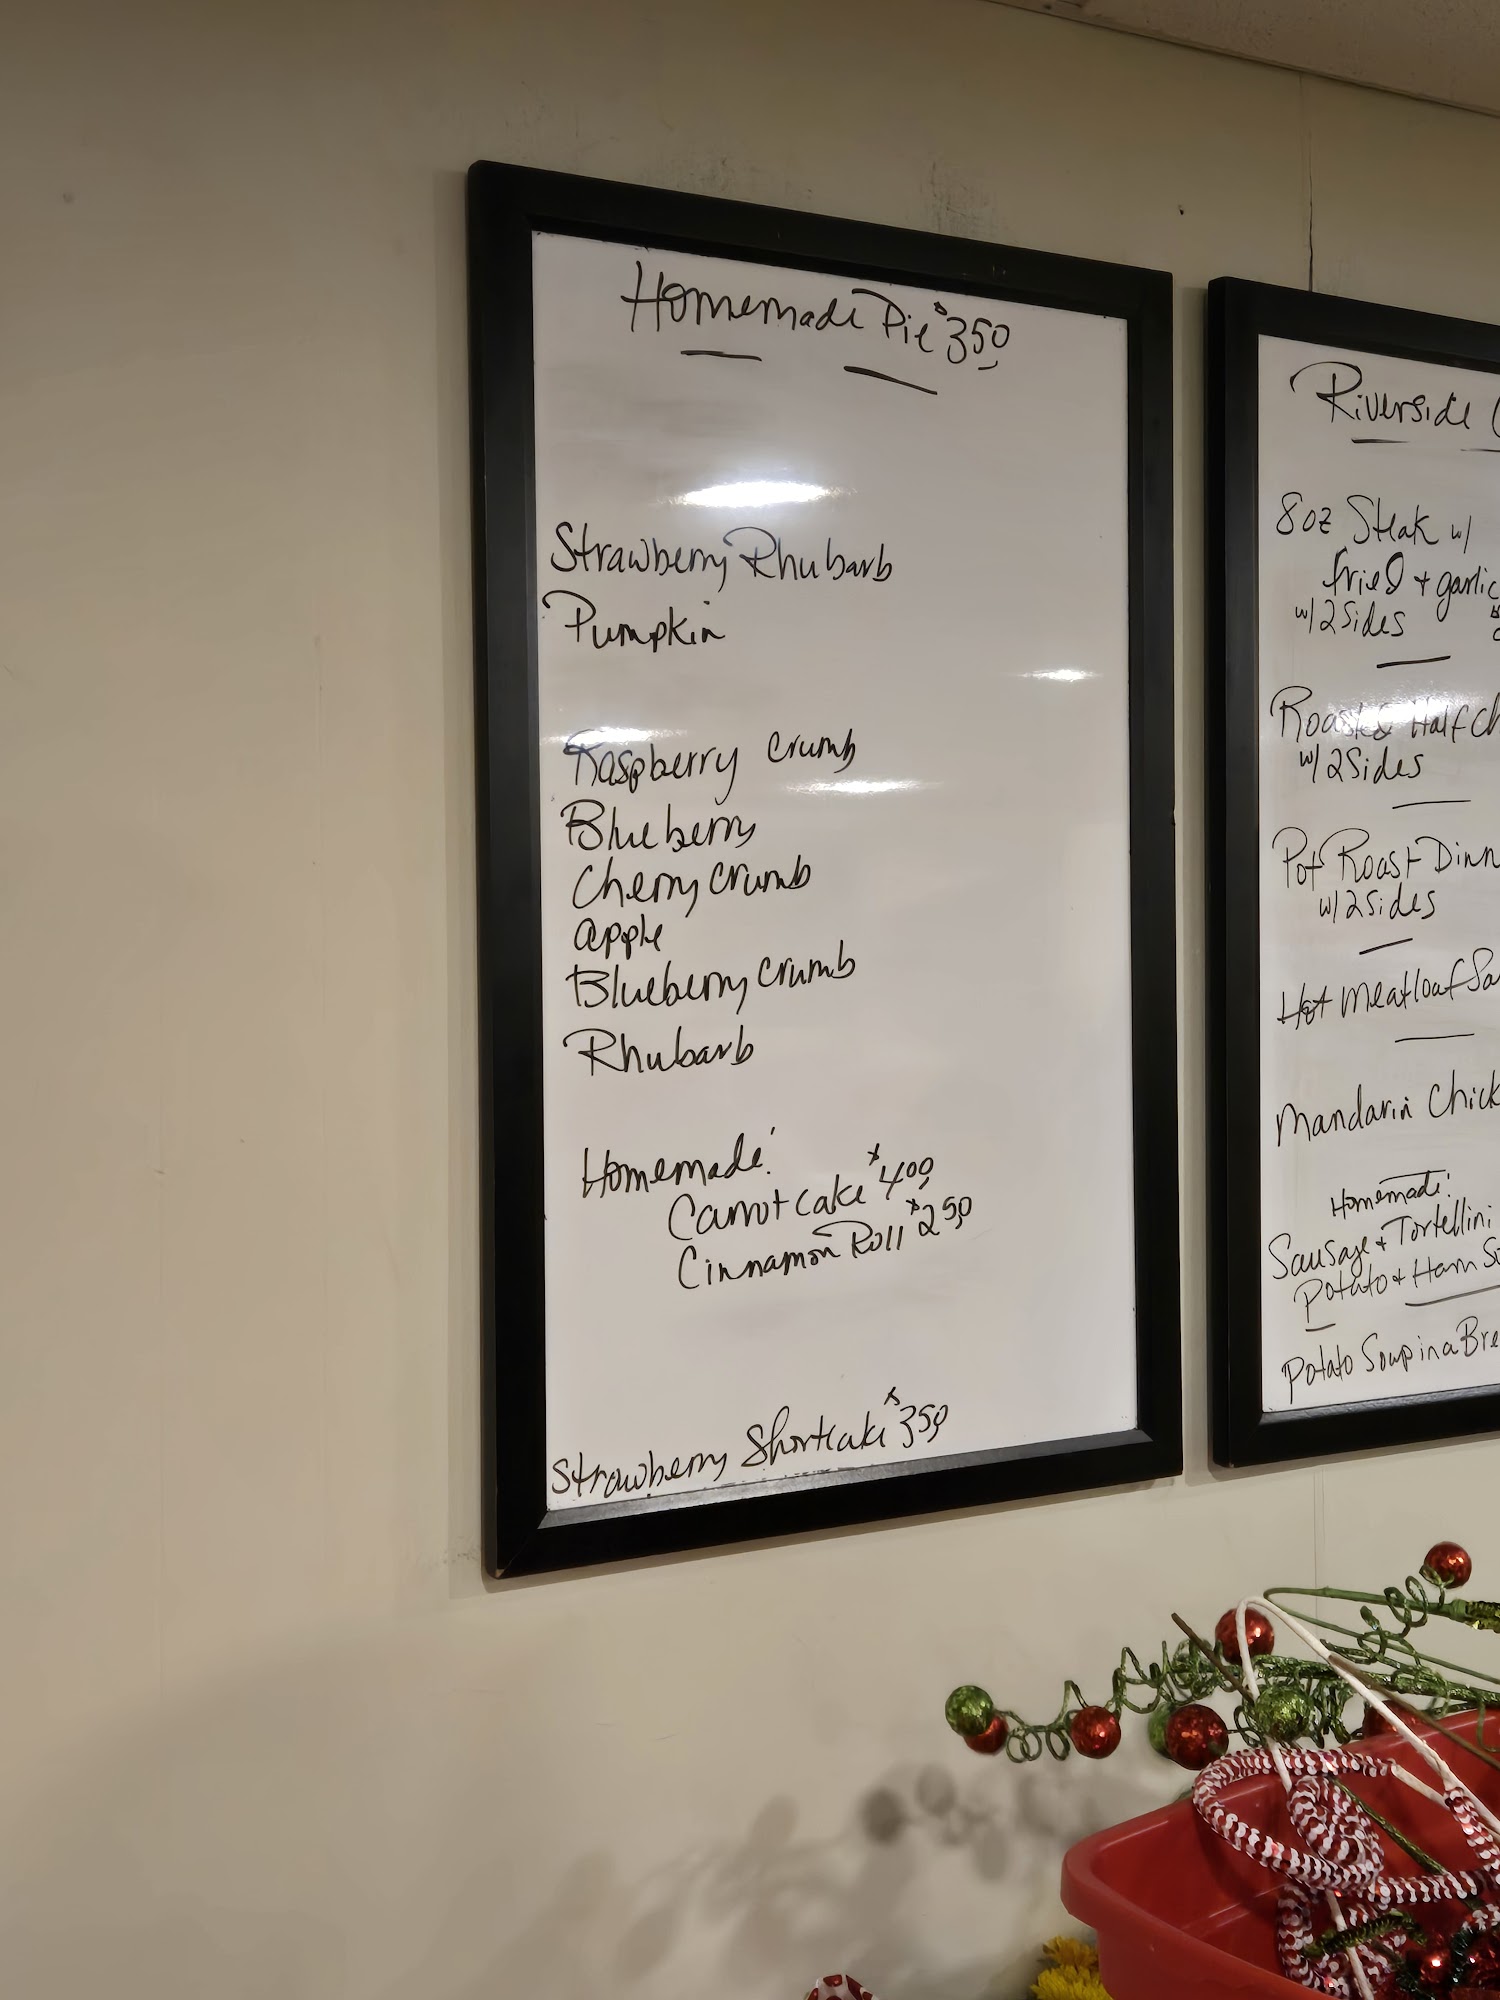 Homemade Pie $3.50
Strawberry Rhubarb
Pumpkin
Raspberry Crumb
Blueberry
Cherry Crumb
apple
Blueberry Crumb
Rhubarb
Homemade:
Carrot cake $4.00
Cinnamon Roll $2.50
Strawberry Shortcake $3.50
Riverside
8oz Steak w/
fried + garlic
w/ 2 Sides
Roasted Half Ch
w/ 2 Sides
Pot Roast Dinn
w/ 2 Sides
Hot Meatloaf Sa
Mandarin Chick
Homemade:
Sausage + Tortellini
Potato + Ham So
Potato Soup in a Bre